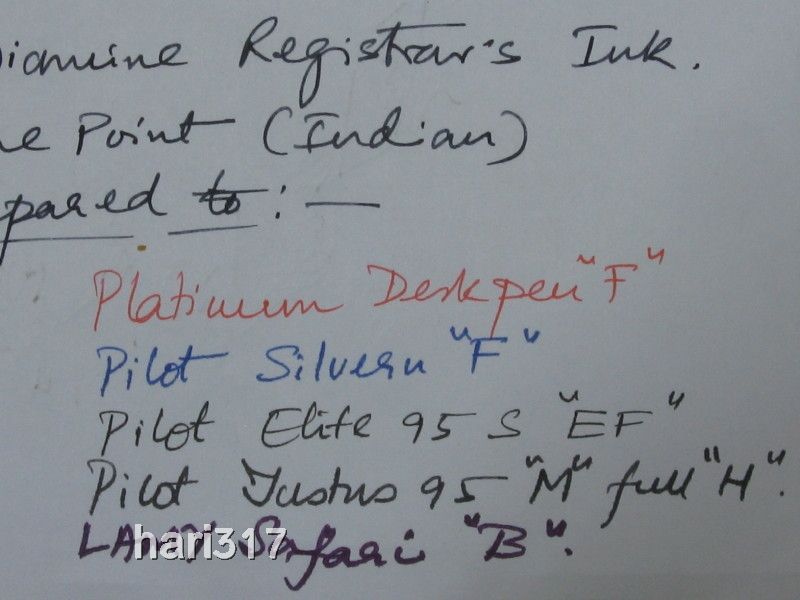 iamine Registrar's Ink.
ne Point (Indian)
pared to: —
Platinum Deskpen "F"
Pilot Silvern "F"
Pilot Elite 95 S "EF"
Pilot Justus 95 "M" full "H".
LAMY Safari "B".
hari317